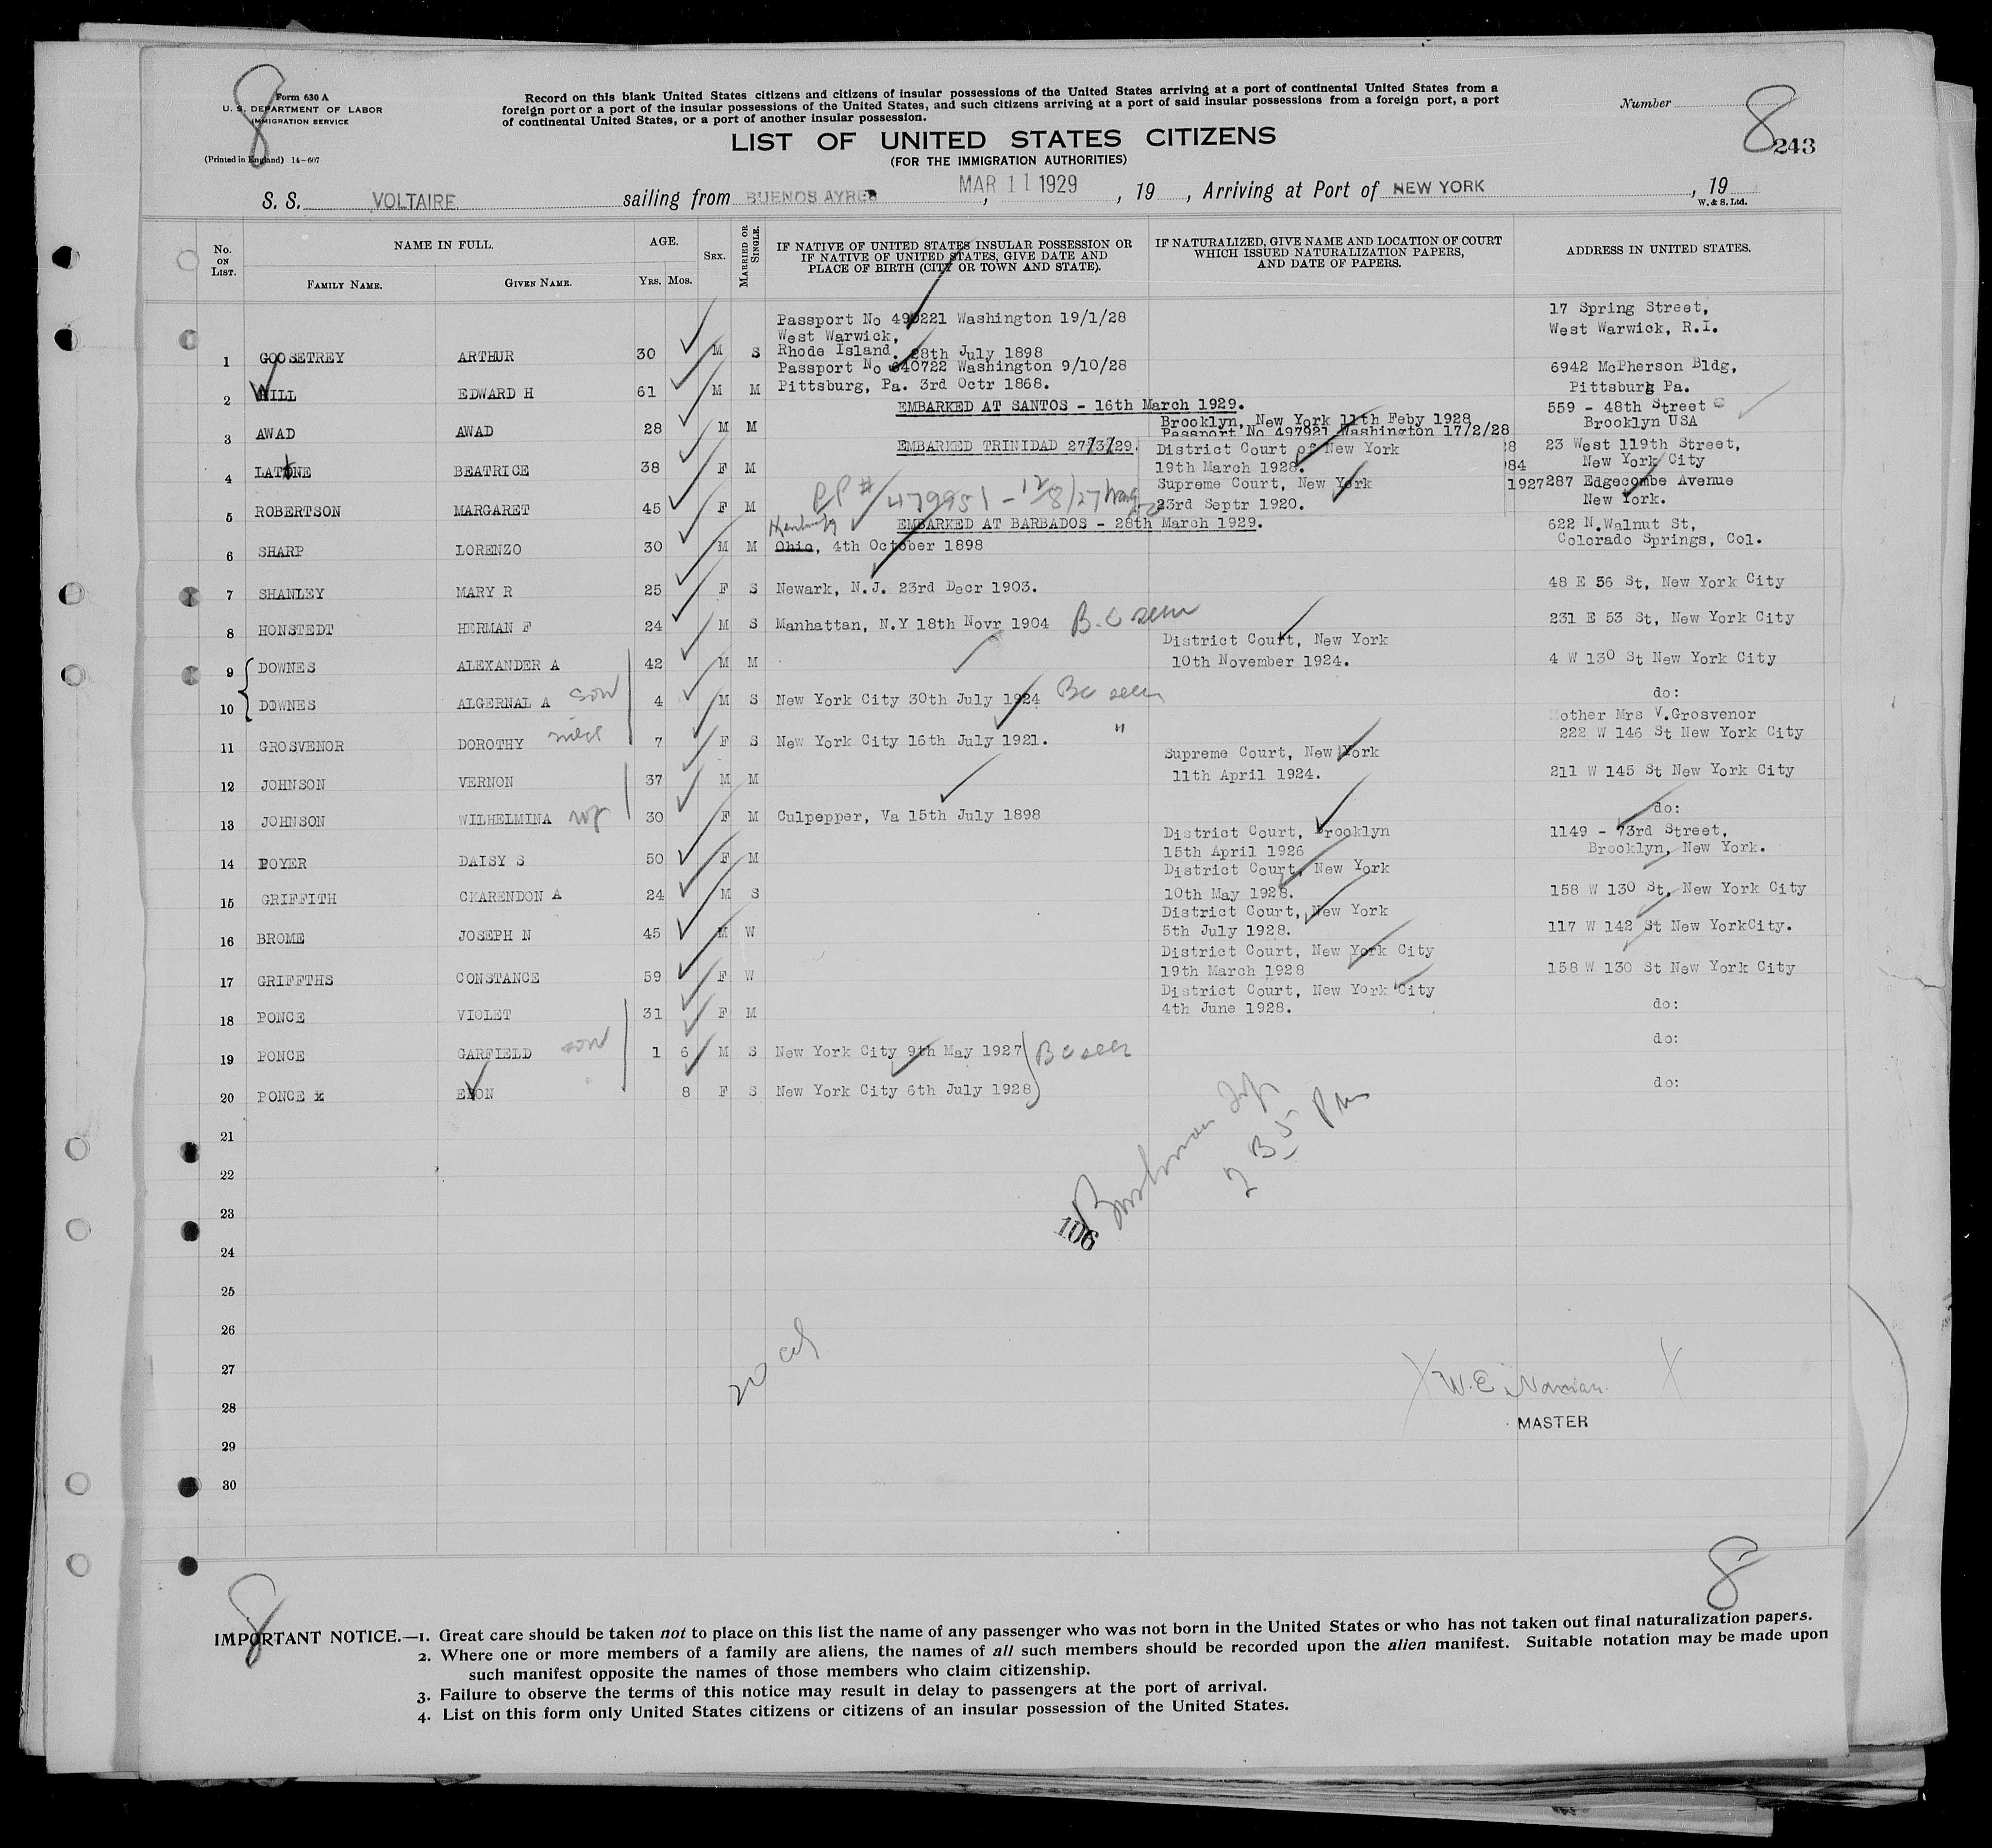 Form 630 A
U. S. DEPARTMENT OF LABOR
IMMIGRATION SERVICE
(Printed in England) 14-607
8
Record on this blank United States citizens and citizens of insular possessions of the United States arriving at a port of continental United States from a
foreign port or a port of the insular possessions of the United States, and such citizens arriving at a port of said insular possessions from a foreign port, a port
of continental United States, or a port of another insular possession.
Number
8
243
LIST OF UNITED STATES CITIZENS
(FOR THE IMMIGRATION AUTHORITIES)
S. S. VOLTAIRE sailing from BUENOS AYRES, MAR 11 1929, 19, Arriving at Port of NEW YORK, 19
W. & S. Ltd.
No. ON LIST. NAME IN FULL. AGE. SEX. MARRIED OR SINGLE. IF NATIVE OF UNITED STATES INSULAR POSSESSION OR IF NATIVE OF UNITED STATES, GIVE DATE AND PLACE OF BIRTH (CITY OR TOWN AND STATE). IF NATURALIZED, GIVE NAME AND LOCATION OF COURT WHICH ISSUED NATURALIZATION PAPERS, AND DATE OF PAPERS. ADDRESS IN UNITED STATES.
FAMILY NAME. GIVEN NAME. YRS. MOS.
Passport No 490221 Washington 19/1/28 17 Spring Street,
West Warwick, West Warwick, R.I.
1 GOOSETREY ARTHUR 30 M S Rhode Island. 28th July 1898
Passport No 640722 Washington 9/10/28 6942 McPherson Bldg,
2 HILL EDWARD H 61 M M Pittsburg, Pa. 3rd Octr 1868. Pittsburg Pa.
EMBARKED AT SANTOS - 16th March 1929. 559 - 48th Street
Brooklyn, New York 11th Feby 1928 Brooklyn USA
3 AWAD AWAD 28 M M Passport No 497921 Washington 17/2/28
EMBARKED TRINIDAD 27/3/29. District Court of New York 28 23 West 119th Street,
4 LATONE BEATRICE 38 F M 19th March 1928. 84 New York City
Supreme Court, New York 1927 287 Edgecombe Avenue
5 ROBERTSON MARGARET 45 F M PP # 479951 - 12/8/27 23rd Septr 1920. New York.
EMBARKED AT BARBADOS - 28th March 1929. 622 N.Walnut St,
6 SHARP LORENZO 30 M M Ohio, 4th October 1898 Colorado Springs, Col.
7 SHANLEY MARY R 25 F S Newark, N.J. 23rd Decr 1903. 48 E 56 St, New York City
8 HONSTEDT HERMAN F 24 M S Manhattan, N.Y 18th Novr 1904 B.C seen 231 E 53 St, New York City
District Court, New York
9 DOWNES ALEXANDER A 42 M M 10th November 1924. 4 W 130 St New York City
10 DOWNES ALGERNAL A son 4 M S New York City 30th July 1924 BC seen do:
Mother Mrs V.Grosvenor
11 GROSVENOR DOROTHY niece 7 F S New York City 16th July 1921. " 222 W 146 St New York City
Supreme Court, New York
12 JOHNSON VERNON 37 M M 11th April 1924. 211 W 145 St New York City
13 JOHNSON WILHELMINA wf 30 F M Culpepper, Va 15th July 1898 do:
District Court, Brooklyn 1149 - 73rd Street,
14 POYER DAISY S 50 F M 15th April 1926 Brooklyn, New York.
District Court, New York
15 GRIFFITH CKARENDON A 24 M S 10th May 1928. 158 W 130 St, New York City
District Court, New York
16 BROME JOSEPH N 45 M W 5th July 1928. 117 W 142 St New YorkCity.
District Court, New York City
17 GRIFFTHS CONSTANCE 59 F W 19th March 1928 158 W 130 St New York City
District Court, New York City
18 PONCE VIOLET 31 F M 4th June 1928. do:
19 PONCE GARFIELD son 1 6 M S New York City 9th May 1927 BC seen do:
20 PONCE 8 F S New York City 6th July 1928 do:
21
22
23
24
25
26
27
28
29
30
2 35 Pm
106
W. E. Norman.
MASTER
8
8
IMPORTANT NOTICE.—1. Great care should be taken not to place on this list the name of any passenger who was not born in the United States or who has not taken out final naturalization papers.
2. Where one or more members of a family are aliens, the names of all such members should be recorded upon the alien manifest. Suitable notation may be made upon
such manifest opposite the names of those members who claim citizenship.
3. Failure to observe the terms of this notice may result in delay to passengers at the port of arrival.
4. List on this form only United States citizens or citizens of an insular possession of the United States.